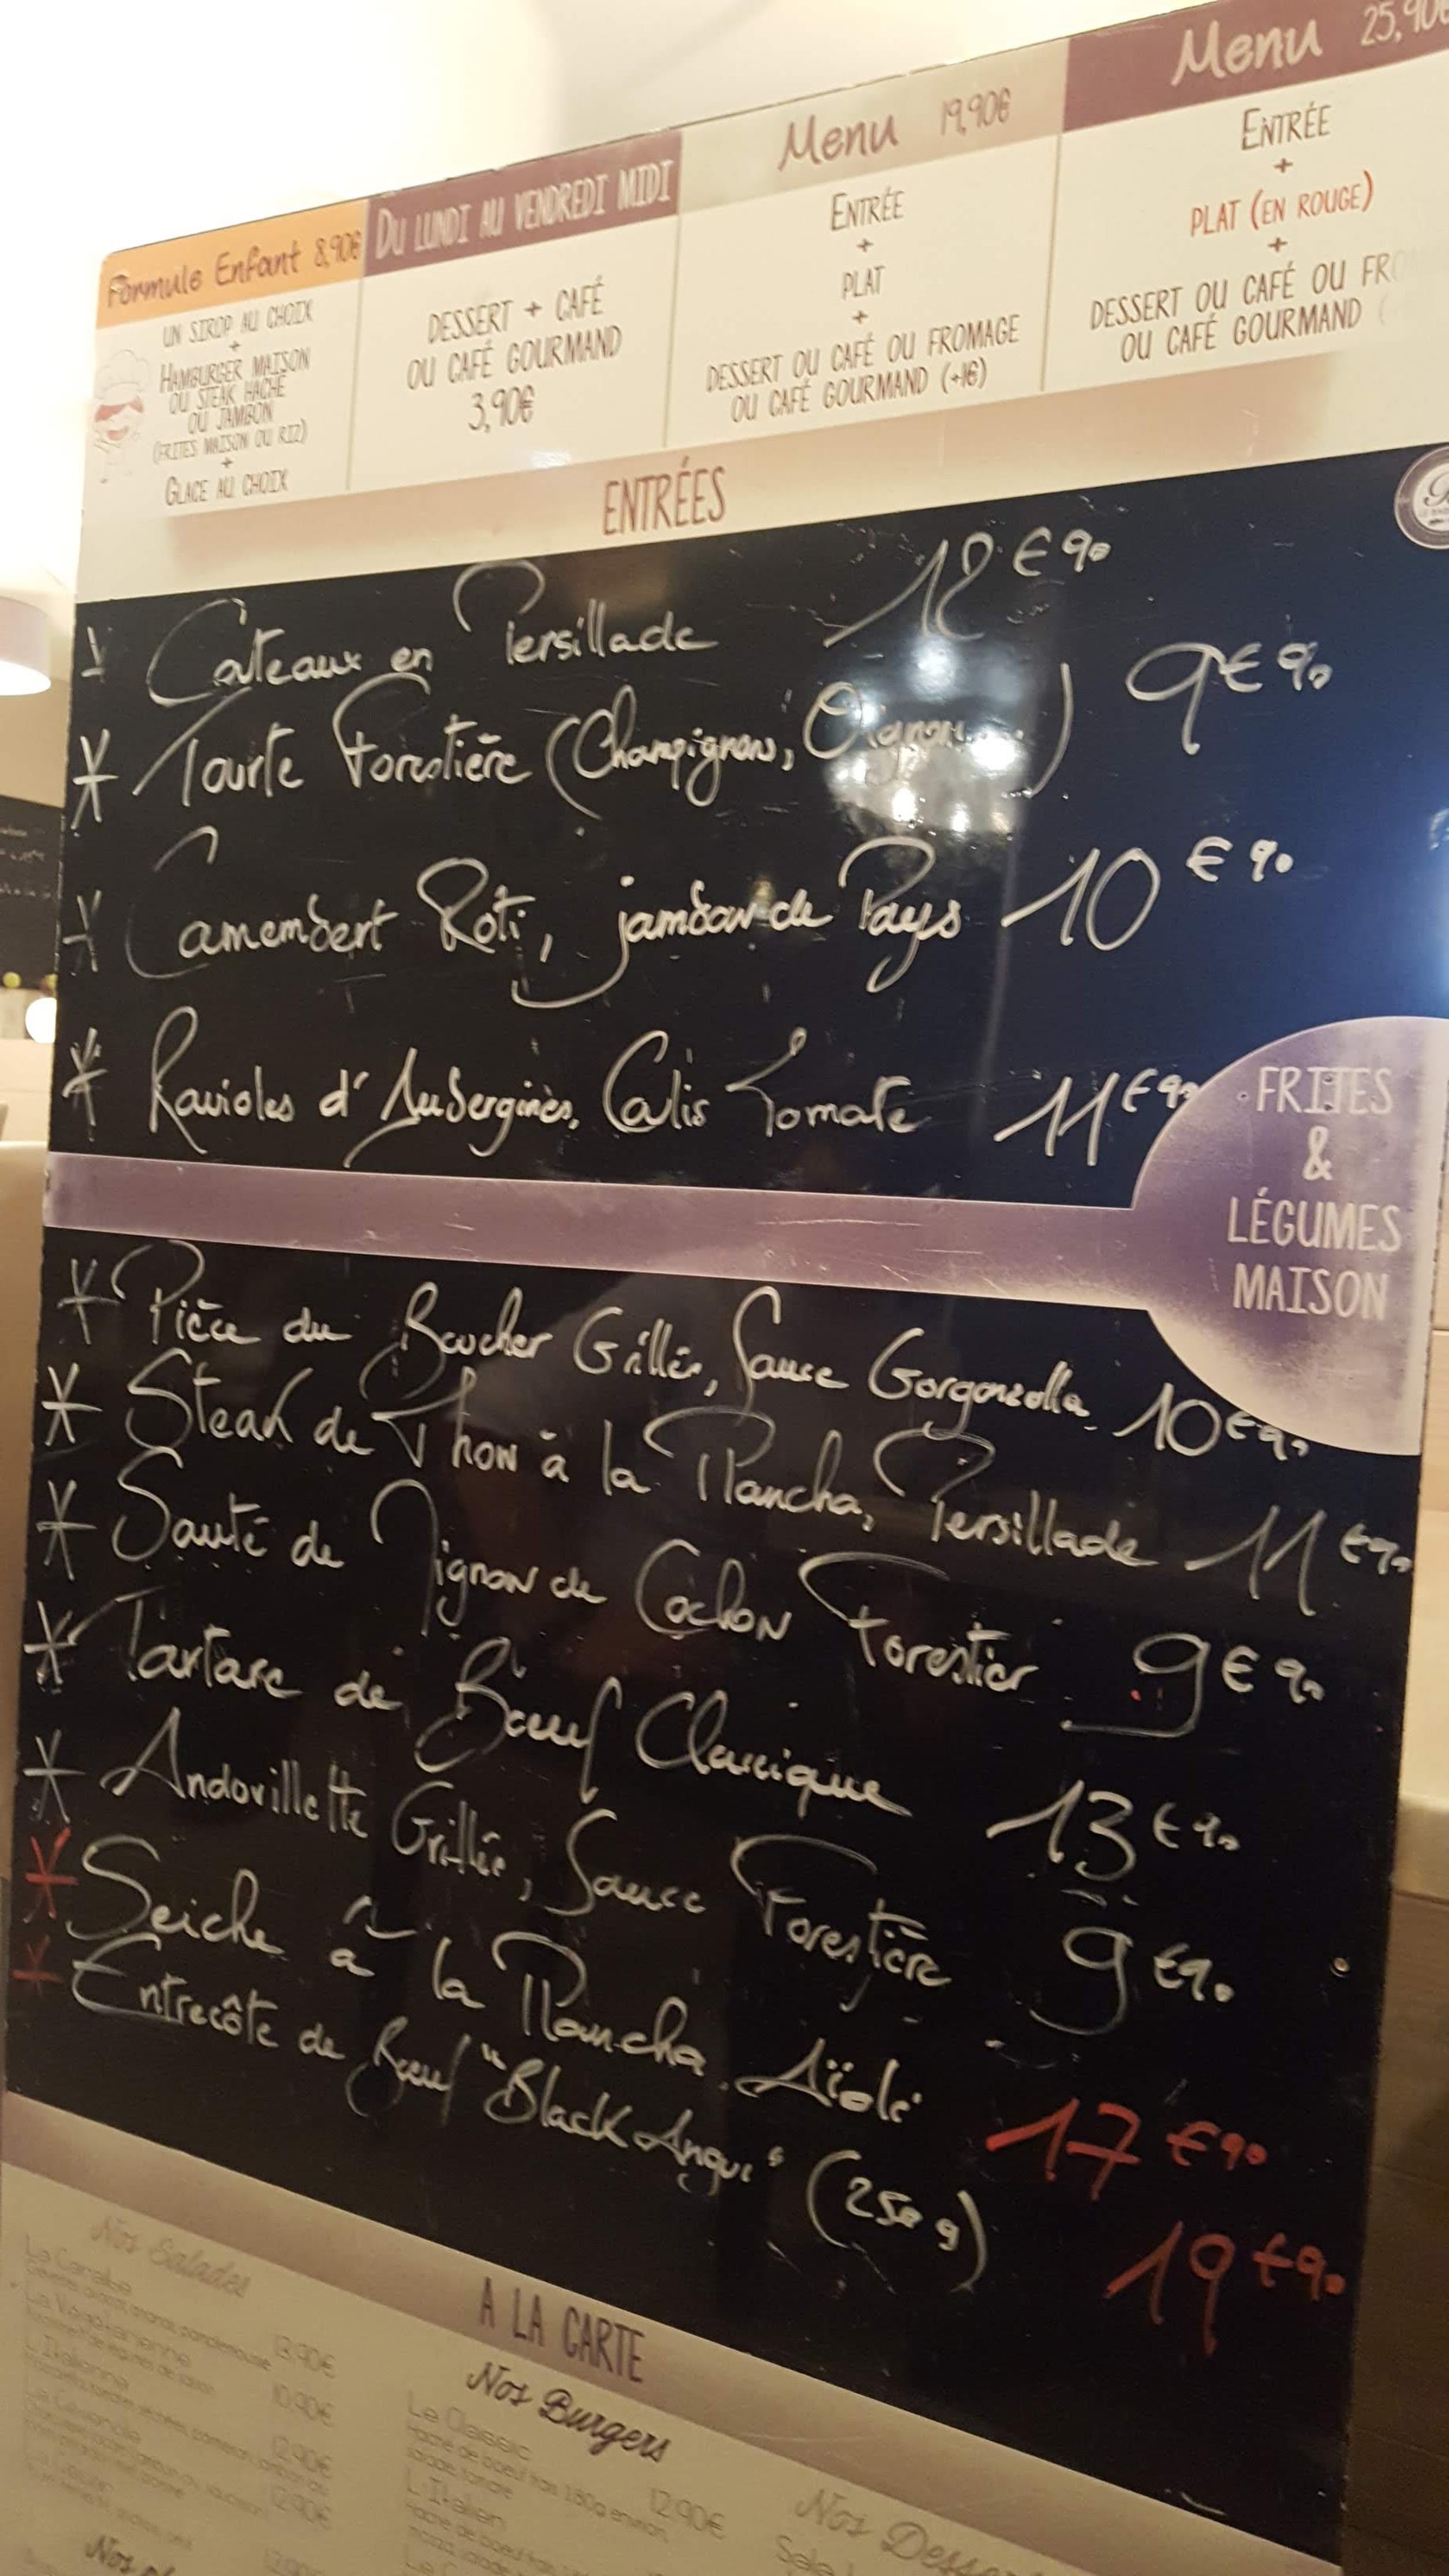 Formule Enfant 8,90€
UN SIROP AU CHOIX
+
HAMBURGER MAISON
OU STEAK HACHÉ
OU JAMBON
(FRITES MAISON OU RIZ)
+
GLACE AU CHOIX
DU LUNDI AU VENDREDI MIDI
DESSERT + CAFÉ
OU CAFÉ GOURMAND
3,90€
Menu 19,90€
ENTRÉE
+
PLAT
+
DESSERT OU CAFÉ OU FROMAGE
OU CAFÉ GOURMAND (+1€)
Menu 25,90€
ENTRÉE
+
PLAT (EN ROUGE)
+
DESSERT OU CAFÉ OU FRO
OU CAFÉ GOURMAND (
ENTRÉES
* Couteaux en Persillade 12€90
* Tourte Forestière (Champignons, Oignon...) 9€90
* Camembert Rôti, jambon de Pays 10€90
* Ravioles d'Aubergines, Coulis Tomate 11€90
FRITES
&
LÉGUMES
MAISON
* Pièce du Boucher Grillée, Sauce Gorgonzolla 10€90
* Steak de Thon à la Plancha, Persillade 11€90
* Sauté de Mignon de Cochon Forestier 9€90
* Tartare de Bœuf Classique 13€90
* Andouillette Grillée, Sauce Forestière 9€90
* Seiche à la Plancha, Aïoli 17€90
* Entrecôte de Bœuf "Black Angus" (250g) 19€90
A LA CARTE
Nos Salades
13.90€
10.90€
L'Italienne
12.90€
12.90€
Nos Burgers
Le Classic 12.90€
Haché de boeuf frais 180g environ,
salade, tomate
L'Italien
Nos Dessert